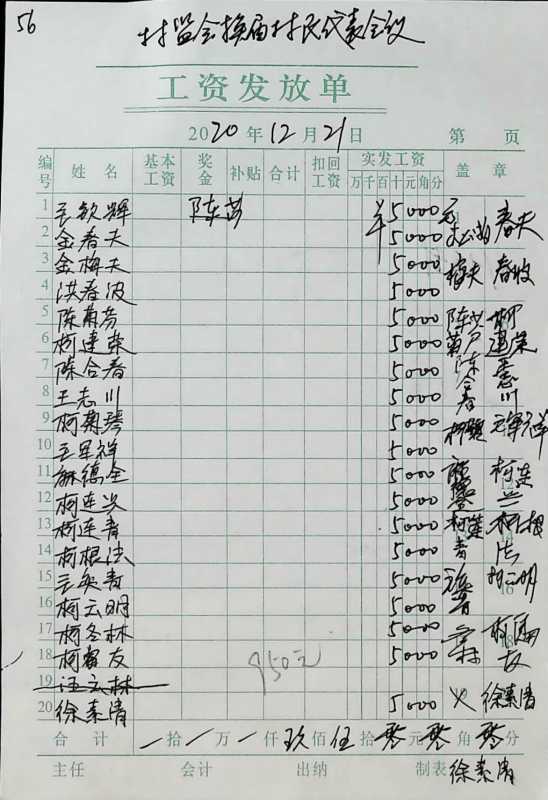 56
村监会换届村民代表会议
工资发放单
2020年12月21日 第 页
编号 姓名 基本工资 奖金 补贴 合计 扣回工资 实发工资 万千百十元角分 盖章
1 王钦辉 陈芬 5000
2 金春夫 5000 春夫
3 金梅夫 5000 梅夫 春波
4 洪春波 5000
5 陈菊芬 5000 陈 柯
6 柯建荣 5000 菊芬 建荣
7 陈合春 5000 陈
8 王志川 5000 合春 志川
9 柯菊琴 5000
10 王军祥 5000
11 麻德全 5000 柯连
12 柯连兴 5000
13 柯连青 5000 柯连 柯根
14 柯根法 5000 青 法
15 王英青 5000 柯云明
16 柯云明 5000
17 柯冬林 5000
18 柯富友 5000 林 友
19 汪云林
20 徐素清 5000 徐素清
950元
合计 一拾一万一仟玖佰伍拾零元零角零分
主任 会计 出纳 制表 徐素清